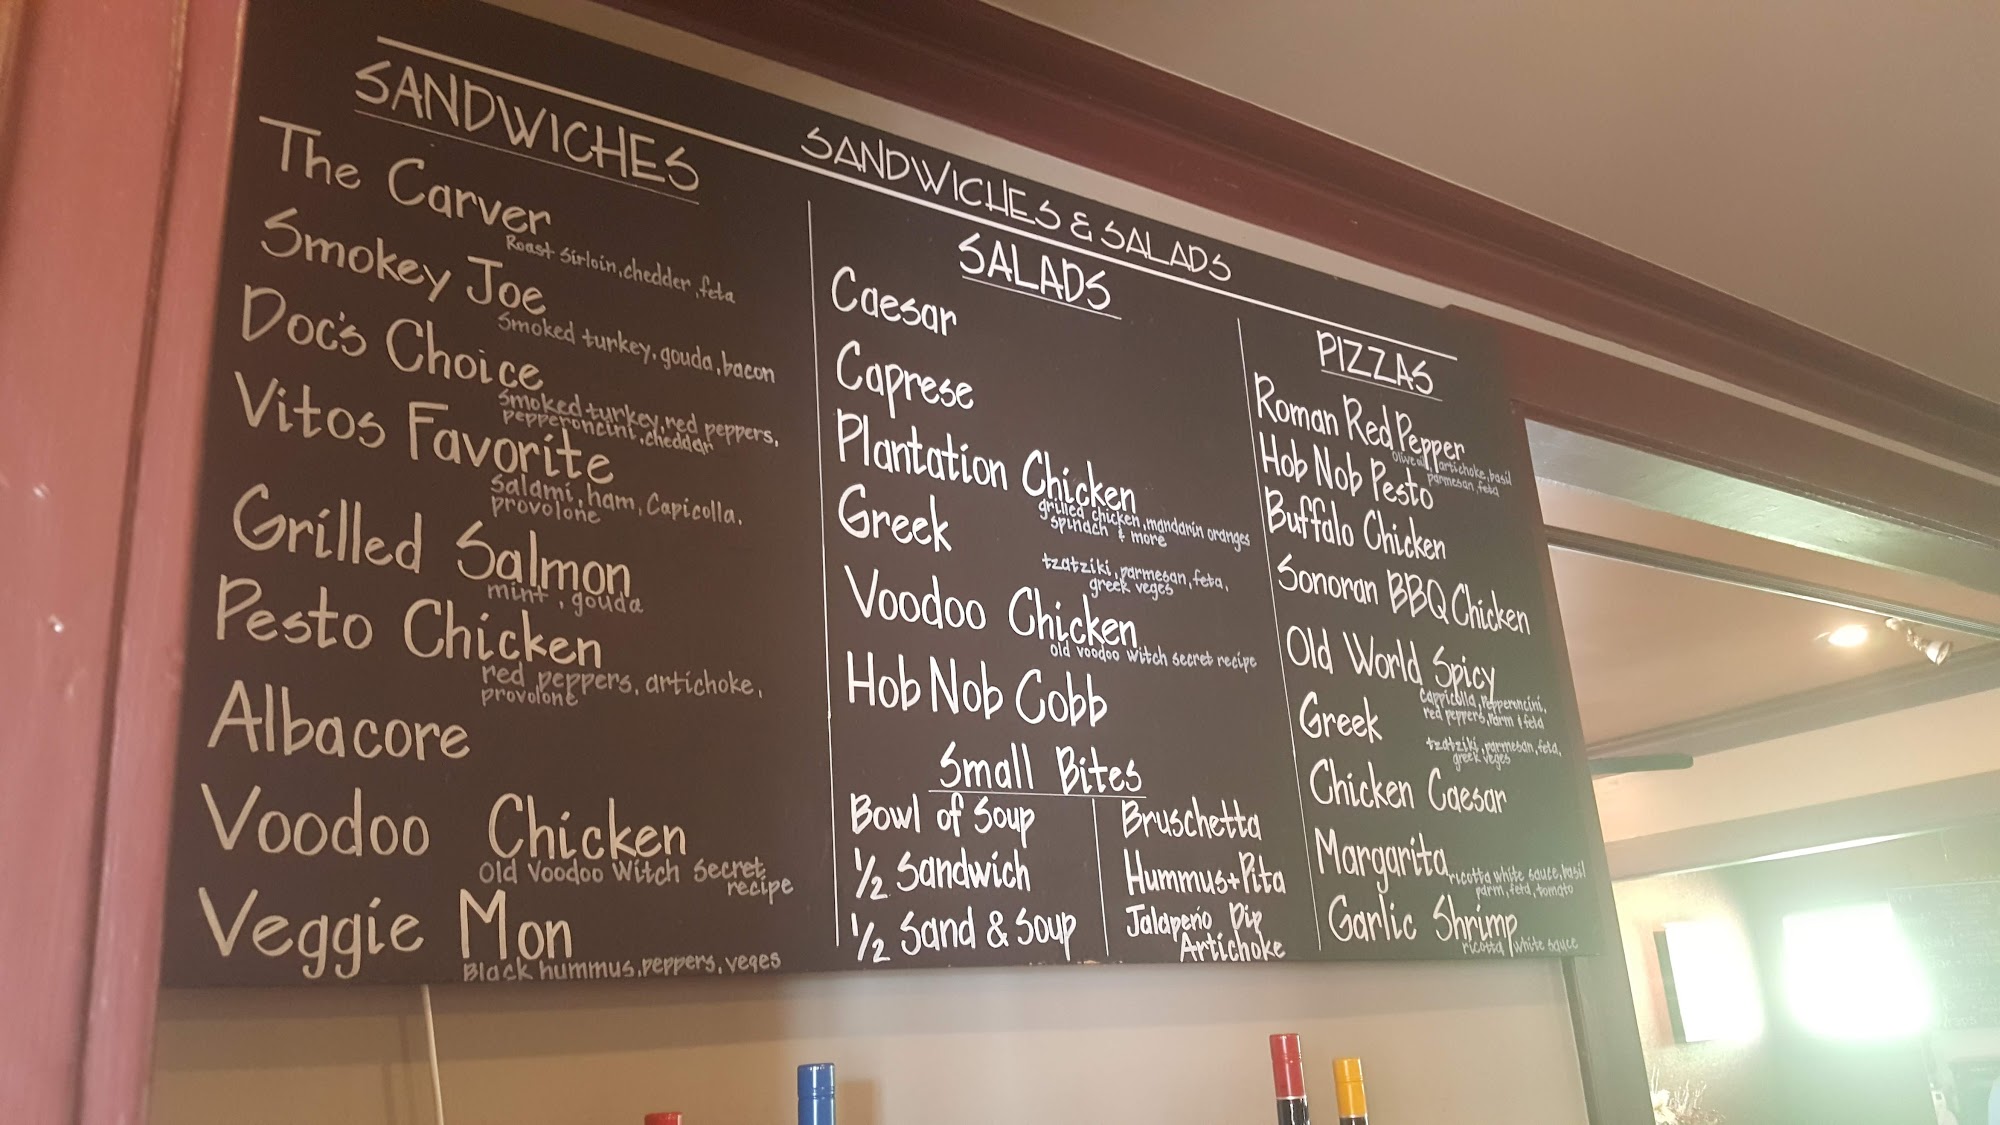 SANDWICHES & SALADS
SANDWICHES
The Carver
Roast Sirloin, chedder, feta
Smokey Joe
Smoked turkey, gouda, bacon
Doc's Choice
Smoked turkey, red peppers,
pepperoncini, cheddar
Vitos Favorite
Salami, ham, Capicolla,
provolone
Grilled Salmon
mint, gouda
Pesto Chicken
red peppers, artichoke,
provolone
Albacore
Voodoo Chicken
Old Voodoo Witch Secret
recipe
Veggie Mon
Black hummus, peppers, veges
SALADS
Caesar
Caprese
Plantation Chicken
grilled chicken, mandarin oranges
spinach & more
Greek
tzatziki, parmesan, feta,
greek veges
Voodoo Chicken
old voodoo witch secret recipe
Hob Nob Cobb
Small Bites
Bowl of Soup
1/2 Sandwich
1/2 Sand & Soup
Bruschetta
Hummus+Pita
Jalapeño Dip
Artichoke
PIZZAS
Roman Red Pepper
Olive oil, artichoke, basil
parmesan, feta
Hob Nob Pesto
Buffalo Chicken
Sonoran BBQ Chicken
Old World Spicy
Cappicolla, Pepperoncini,
red peppers, parm & feta
Greek
tzatziki, parmesan, feta,
greek veges
Chicken Caesar
Margarita
ricotta white sauce, basil
parm, feta, tomato
Garlic Shrimp
ricotta white sauce